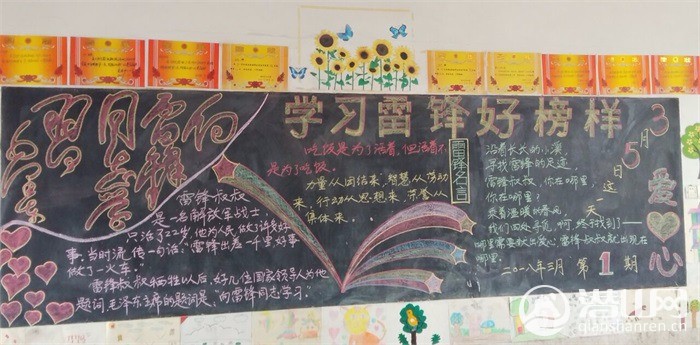 向雷锋同志学习
毛泽东
学习雷锋好榜样
雷锋叔叔
是一名解放军战士
只活了22岁,他为人民做了许多好
事。当时流传一句话:“雷锋出差一千里好事
做了一火车。”
雷锋叔叔牺牲以后,好几位国家领导人为他
题词,毛泽东主席的题词是、“向雷锋同志学习”。
吃饭是为了活着,但活着不
是为了吃饭。
力量从团结来,智慧从劳动
来,行动从思想来,荣誉从
集体来。
雷锋名言
沿着长长的小溪,
寻找雷锋的足迹,
雷锋叔叔,你在哪里,
你在哪里?
乘着温暖的春风
我们四处寻觅,啊,终于找到了——
哪里需要献出爱心,雷锋叔叔就出现在
哪里。
二〇一八年三月 第1期
3月5日这天
爱心
潜山网
qianshanren.cn